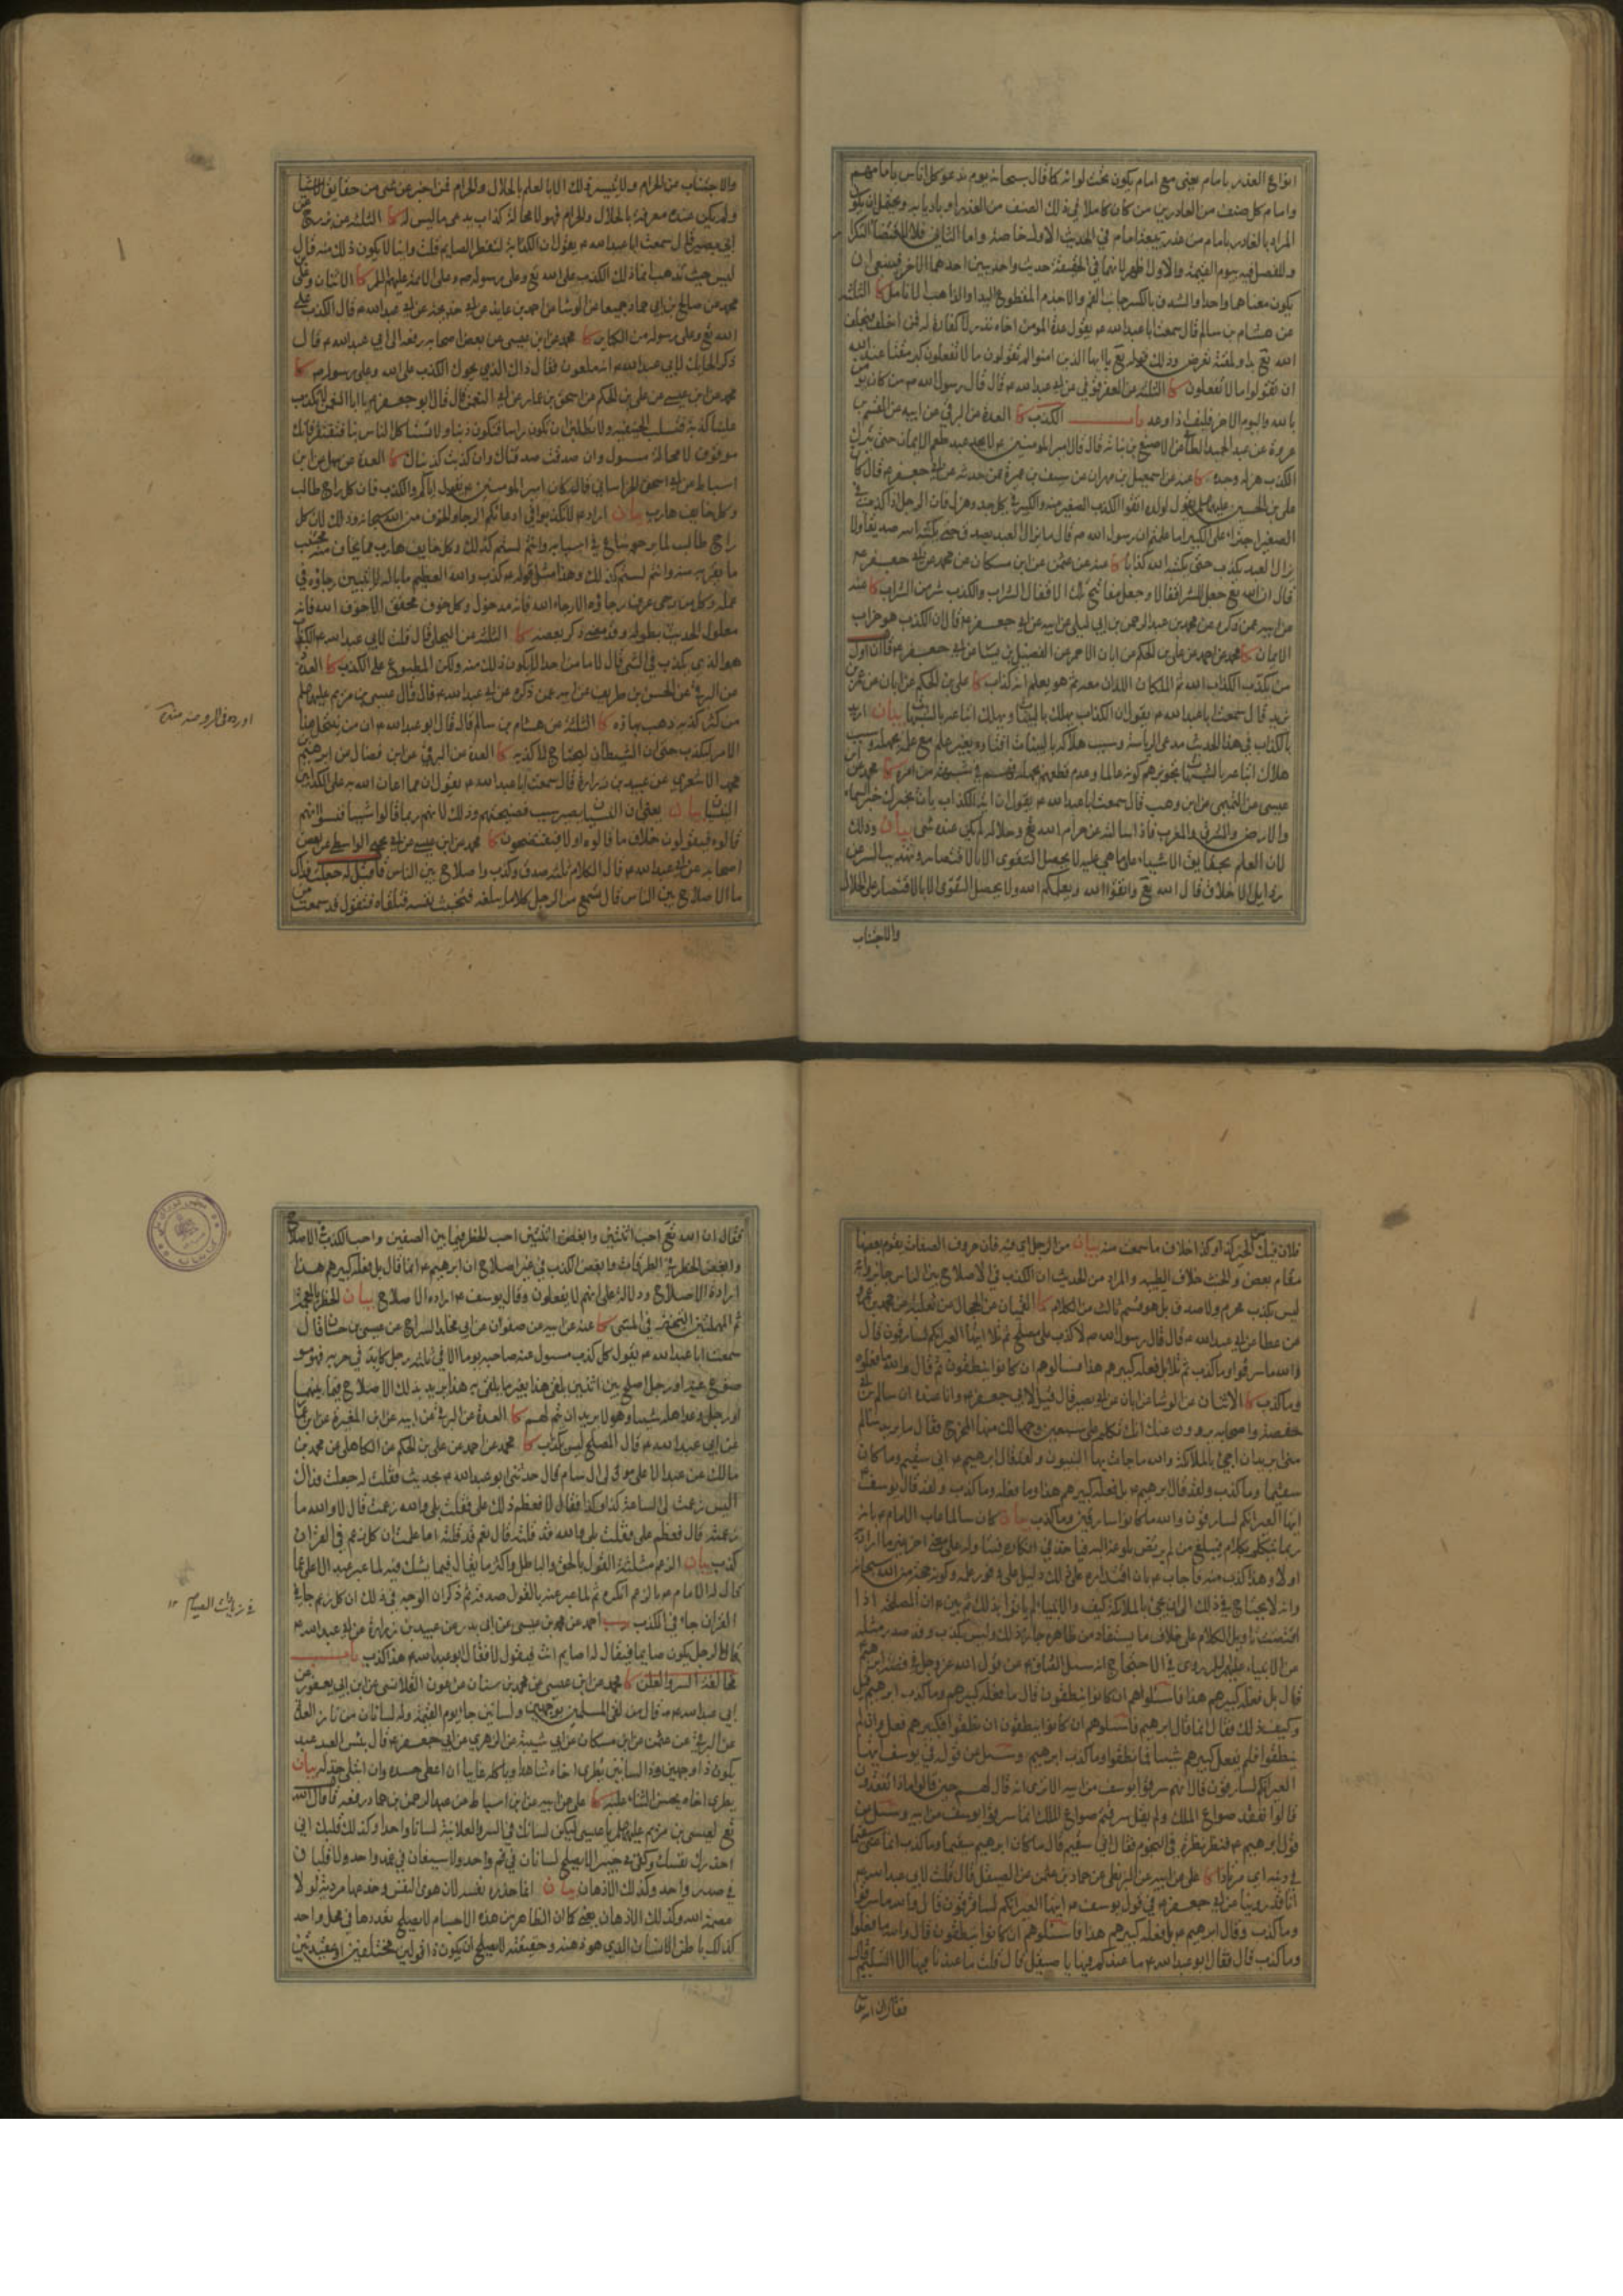 انواع الغدر بامام يعنى مع امام يكون تحت لوائه كما قال سبحانه يوم ندعو كل اناس بامامهم
وامام كل صنف من الغادرين من كان كاملا في ذلك الصنف من الغدر او باديا به ويحتمل ان يكون
المراد بالغادر بامام من غدر ببيعة امام في الحديث الاول خاصة واما الثاني فلا
يكون معناهما واحدا والشدق بالكسر جانب الفم والاجذم المقطوع اليد او الذاهب الانامل كا الثلثة
عن هشام بن سالم قال سمعت ابا عبد الله ع يقول عدة المؤمن اخاه نذر لا كفارة له فمن اخلف فبخلف
الله تع بدا ولمقته تعرض وذلك قوله تع يا ايها الذين امنوا لم تقولون ما لا تفعلون كبر مقتا عند الله
ان تقولوا ما لا تفعلون كا الثلثة عن العقرقوفي عن ابي عبد الله ع قال قال رسول الله ص من كان يؤمن
بالله واليوم الاخر فليف اذا وعد باب الكذب كا العدة عن البرقي عن ابيه عن القسم بن
عروة عن عبد الحميد الطائي عن الاصبغ بن نباتة قال قال امير المومنين ع لا يجد عبد طعم الايمان حتى يترك
الكذب هزله وجده كا عنه عن اسمعيل بن مهران عن سيف بن عميرة عمن حدثه عن ابي جعفر ع قال كان
على بن الحسين عليهما السلم يقول لولده اتقوا الكذب الصغير منه والكبير في كل جد وهزل فان الرجل اذا كذب في
الصغير اجترء على الكبير اما علمتم ان رسول الله ص قال ما يزال العبد يصدق حتى يكتبه الله صديقا ولا
يزال العبد يكذب حتى يكتبه الله كذابا كا عنه عن عثمن عن ابن مسكان عن محمد عن ابي جعفر ع
قال ان الله تع جعل للشر اقفالا وجعل مفاتيح تلك الاقفال الشراب والكذب شر من الشراب كا عنه
عن ابيه عمن ذكره عن محمد بن عبد الرحمن بن ابي ليلى عن ابيه عن ابي جعفر ع قال ان الكذب هو خراب
الايمان كا محمد عن احمد عن على بن الحكم عن ابان الاحمر عن الفضيل بن يسار عن ابي جعفر ع قال ان اول
من يكذب الكذاب الله ثم الملكان اللذان معه ثم هو يعلم انه كذاب كا على بن الحكم عن ابان عن عمر بن
يزيد قال سمعت ابا عبد الله ع يقول ان الكذاب يهلك بالبينات ويهلك اتباعه بالشبهات بيان اريد
بالكذاب في هذا الحديث مدعى الرياسة وسبب هلاكه بالبينات افتاؤه بغير علم مع علمه بجهله وسبب
هلاك اتباعه بالشبهات تجويزهم كونه عالما وعدم قطعهم بجهله فهم في شبهة من امره كا محمد عن ابن
عيسى عن التميمي عن ابن وهب قال سمعت ابا عبد الله ع يقول ان اية الكذاب بان يخبرك خبر السماء
والارض والمشرق والمغرب فاذا سالته عن حرام الله تع وحلاله لم يكن عنده شئ بيان وذلك
لان العلم بحقايق الاشياء على ما هي عليه لا يحصل لاحد الا بالتقوى وتهذيب السر عن
رذايل الاخلاق قال الله تع واتقوا الله ويعلمكم الله ولا يحصل التقوى الا بالاقتصار على الحلال
والاجتناب
والاجتناب من الحرام ولا يتيسر ذلك الا بالعلم بالحلال والحرام فمن اخبر عن شئ من حقايق الاشيا
ولم يكن عنده معرفة بالحلال والحرام فهو لا محالة كذاب يدعى ما ليس له كا الثلثة عن بزرج عن
ابي بصير قال سمعت ابا عبد الله ع يقول ان الكذبة لتفطر الصايم قلت واينا لا يكون ذلك منه قال
ليس حيث تذهب انما ذلك الكذب على الله تع وعلى رسوله ص وعلى الائمة عليهم السلم كا الاثنان وعلى
محمد عن صالح بن ابي حماد جميعا عن الوشا عن احمد بن عايذ عن ابي خديجة عن ابي عبد الله ع قال الكذب على
الله تع وعلى رسوله من الكباير كا محمد عن ابن عيسى عن بعض اصحابه رفعه الى ابي عبد الله ع قال
ذكر الحايك لابي عبد الله ع انه ملعون فقال ذاك الذي يحوك الكذب على الله وعلى رسوله ص كا
محمد عن ابن عيسى عن على بن الحكم عن اسحق بن عمار عن ابي النعمن قال قال ابو جعفر ع يا ابا النعمن لا تكذب
علينا كذبة فتسلب الحنيفية ولا تطلبن ان تكون راسا فتكون ذنبا ولا تستاكل الناس بنا فتفتقر فانك
موقوف لا محالة ومسؤول وان صدقت صدقناك وان كذبت كذبناك كا العدة عن سهل عن ابن
اسباط عن ابي اسحق الخراساني قال كان امير المومنين ع يقول اياكم والكذب فان كل راج طالب
وكل خايف هارب بيان اراد ع لا تكذبوا في ادعائكم الرجاء والخوف من الله سبحانه وذلك لان كل
راج طالب لما يرجو ساع في اسبابه وانتم لستم كذلك وكل خايف هارب مما يخاف منه مجتنب
ما يقربه منه وانتم لستم كذلك وهذا مثل قوله ع كذب والله العظيم ما باله لا يتبين رجاؤه في
عمله وكل من يرجى عرف رجاؤه الا رجاء الله فانه مدخول وكل خوف محقق الا خوف الله فانه
معلول الحديث بطوله وقد مضى ذكر بعضه كا الثلثة عن البجلي قال قلت لابي عبد الله ع الكذاب
هو الذي يكذب في الشئ قال لا ما من احد الا يكون ذلك منه ولكن المطبوع على الكذب كا العدة
عن البرقي عن الحسن بن طريف عن ابيه عمن ذكره عن ابي عبد الله ع قال قال عيسى بن مريم عليه السلم
من كثر كذبه ذهب بهاؤه كا الثلثة عن هشام بن سالم قال قال ابو عبد الله ع ان من ينتحل هذا
الامر ليكذب حتى ان الشيطان ليحتاج لا كذبه كا العدة عن البرقي عن ابن فضال عن ابرهيم بن
محمد الاشعري عن عبيد بن زرارة قال سمعت ابا عبد الله ع يقول ان مما اعان الله به على الكذابين
النسيان بيان يعنى ان النسيان يصير سبب فضيحتهم وذلك لانهم ربما قالوا شيئا فنسوا انهم
قالوه فيقولون خلاف ما قالوه اولا فيفتضحون كا محمد عن ابن عيسى عن ابي يحيى الواسطي عن بعض
اصحابه عن ابي عبد الله ع قال الكلام ثلثة صدق وكذب واصلاح بين الناس قال قيل له جعلت فداك
ما الاصلاح بين الناس قال تسمع من الرجل كلاما يبلغه فتخبث نفسه فتلقاه فتقول قد سمعت من
فلان قال فيك من الخير كذا وكذا خلاف ما سمعت منه بيان من الرجل اي فيه فان حروف الصفات يقوم بعضها
مقام بعض والخبث خلاف الطيب والمراد من الحديث ان الكذب في الاصلاح بين الناس جايز وانه
ليس بكذب محرم ولا صدق بل هو قسم ثالث من الكلام كا القميان عن الحجال عن ثعلبة عن معمر بن عمرو
عن عطا عن ابي عبد الله ع قال قال رسول الله ص لا كذب على مصلح ثم تلا ايتها العير انكم لسارقون قال
والله ما سرقوا وما كذب ثم تلا بل فعله كبيرهم هذا فسالوهم ان كانوا ينطقون ثم قال والله ما فعلوه
وما كذب كا الاثنان عن الوشا عن ابان عن ابي بصير قال قيل لابي جعفر ع وانا عنده ان سالم بن ابي
حفصة واصحابه يروون عنك انك تكلم على سبعين وجها لك منها المخرج فقال ما يريد سالم
منى ايريد ان اجئ بالملائكة والله ما جاءت بها النبيون ولقد قال ابرهيم ع اني سقيم وما كان
سقيما وما كذب ولقد قال ابرهيم ع بل فعله كبيرهم هذا وما فعله وما كذب ولقد قال يوسف ع
ايتها العير انكم لسارقون والله ما كانوا سارقين وما كذب بيان كان سالما عاب الامام ع بانه
قال بل فعله كبيرهم هذا فاسئلوهم ان كانوا ينطقون قال ما فعله كبيرهم وما كذب ابرهيم قيل
وكيف ذلك فقال انما قال ابرهيم فاسئلوهم ان كانوا ينطقون ان نطقوا فكبيرهم فعل وان لم
ينطقوا فلم يفعل كبيرهم شيئا فما نطقوا وما كذب ابرهيم وسئل عن قوله في يوسف ايتها
العير انكم لسارقون قال انهم سرقوا يوسف من ابيه الا ترى انه قال لهم حين قالوا ماذا تفقدون
قالوا نفقد صواع الملك ولم يقل سرقتم صواع الملك انما سرقوا يوسف من ابيه وسئل عن
قول ابرهيم ع فنظر نظرة في النجوم فقال اني سقيم قال ما كان ابرهيم سقيما وما كذب انما عنى سقيما
في دينه اي مرتادا كا على عن ابيه عن البزنطي عن حماد بن عثمن عن الصيقل قال قلت لابي عبد الله ع
انا قد روينا عن ابي جعفر ع في قول يوسف ع ايتها العير انكم لسارقون قال والله ما سرقوا
وما كذب وقال ابرهيم ع بل فعله كبيرهم هذا فاسئلوهم ان كانوا ينطقون قال والله ما فعلوا
وما كذب قال فقال ابو عبد الله ع ما عندكم فيها يا صيقل قال قلت ما عندنا فيها الا التسليم قال
فقال ان الله تع
فقال ان الله تع احب اثنتين وابغض اثنتين احب الخطر فيما بين الصفين واحب الكذب في الاصلاح
وابغض الخطر في الطرقات وابغض الكذب في غير اصلاح ان ابرهيم ع انما قال بل فعله كبيرهم هذا
ارادة الاصلاح ودلالة على انهم لا يفعلون وقال يوسف ع ارادة الاصلاح بيان الخطر بالمعجمة
ثم المهملتين التبختر في المشى كا عنه عن ابيه عن صفوان عن ابي مخلد السراج عن عيسى بن حسان قال
سمعت ابا عبد الله ع يقول كل كذب مسؤول عنه صاحبه يوما الا في ثلثة رجل كايد في حربه فهو مو
ضوع عنه او رجل اصلح بين اثنين يلقى هذا بغير ما يلقى به هذا يريد بذلك الاصلاح فيما بينهما
او رجل وعد اهله شيئا وهو لا يريد ان يتم لهم كا العدة عن البرقي عن ابيه عن ابن المغيرة عن ابن عمار
عن ابي عبد الله ع قال المصلح ليس بكذاب كا محمد عن احمد عن على بن الحكم عن الكاهلي عن محمد بن
مالك عن عبد الاعلى مولى ال سام قال حدثنى ابو عبد الله ع بحديث فقلت له جعلت فداك
اليس زعمت لى الساعة كذا وكذا فقال لا فعظم ذلك على فقلت بلى والله زعمت قال لا والله ما
زعمته قال فعظم على فقلت بلى والله قد قلته قال نعم قد قلته اما علمت ان كل زعم في القران
كذب بيان الزعم مثلثة القول بالحق والباطل واكثر ما يقال فيما يشك فيه لما عبر عبد الاعلى عما
قال له الامام ع بالزعم انكره ثم لما عبر عنه بالقول صدقه ثم ذكر ان الوجه في ذلك ان كل زعم جاء في
القران جاء في الكذب يب احمد عن محمد بن عيسى عن ابي بدر عن عبيد بن زرارة عن ابي عبد الله ع
قال الرجل يكون صايما فيقال له اصايم انت فيقول لا فقال ابو عبد الله ع هذا كذب باب
مخالفة السر والعلن كا محمد عن ابن عيسى عن محمد بن سنان عن عون القلانسي عن ابن ابي يعفور عن
ابي عبد الله ع قال من لقى المسلمين بوجهين ولسانين جاء يوم القيمة وله لسانان من نار كا العدة
عن البرقي عن عثمن عن ابن مسكان عن ابي شيبة عن الزهري عن ابي جعفر ع قال بئس العبد عبد
يكون ذا وجهين وذا لسانين يطرى اخاه شاهدا وياكله غايبا ان اعطى حسده وان ابتلى خذله بيان
يطرى اخاه يحسن الثناء عليه كا على عن ابيه عن ابن اسباط عن عبد الرحمن بن حماد رفعه قال قال الله
تع لعيسى بن مريم عليه السلم يا عيسى ليكن لسانك في السر والعلانية لسانا واحدا وكذلك قلبك اني
احذرك نفسك وكفى بي خبيرا لا يصلح لسانان في فم واحد ولا سيفان في غمد واحد ولا قلبان
في صدر واحد وكذلك الاذهان بيان انما حذره نفسه لان هوى النفس وخدعها مردية لو لا
عصمة الله وكذلك الاذهان يعنى كما ان الظاهر من هذه الاجسام لا يصلح تعددها في محل واحد
كذلك باطن الانسان الذي هو ذهنه وحقيقته لا يصلح ان يكون ذا قولين مختلفين او عقيدتين